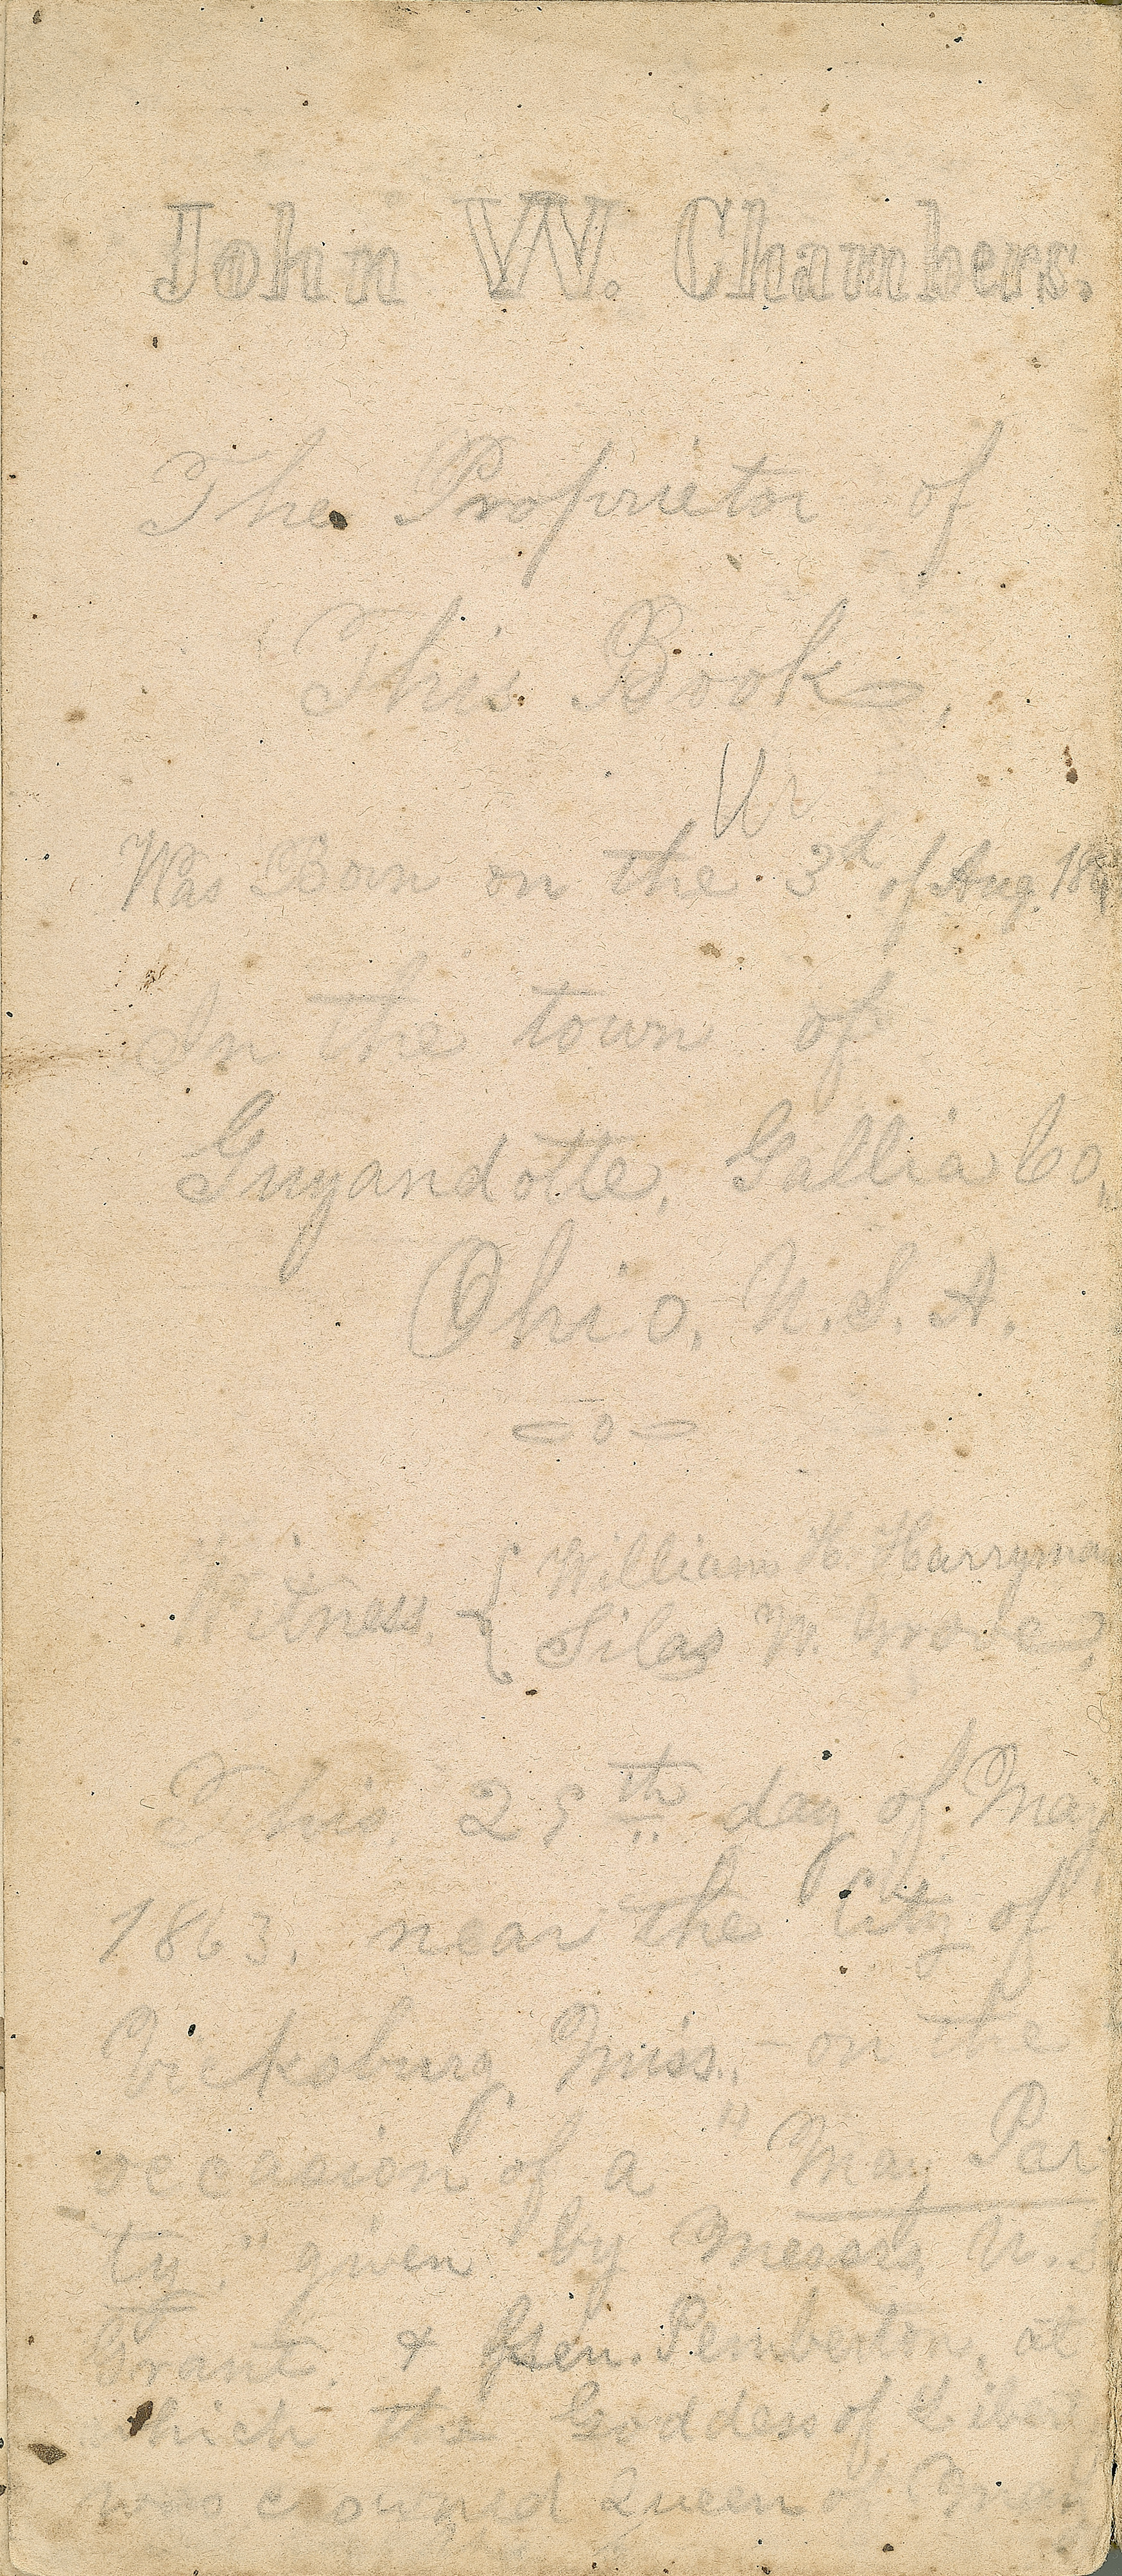 John W. Chambers.
The Proprietor of
This Book,
Was Born on the 3d of Aug. 18
In the town of
Guyandotte, Gallia Co.,
Ohio, U.S.A.
Witness, { William H. Harryman
Silas W. Grove,
This 25th day of May
1863, near the City of
Vicksburg Miss., – on the
occasion of a "May Par
ty," given by Messrs U.S
Grant, & Gen. Pemberton, at
which the Goddess of Libert
was crowned Queen of